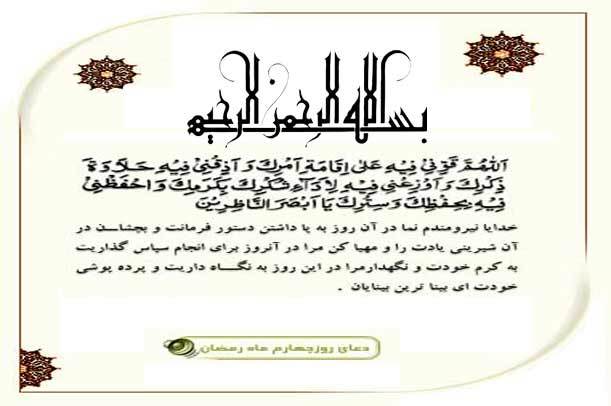 بسم الله الرحمن الرحیم
اَللّهُمَّ قَوِّنی فیهِ عَلی اِقامَةِ اَمْرِکَ وَ اَذِقْنی فیهِ حَلاوَةَ
ذِکْرِکَ وَ اَوْزِعْنی فیهِ لِاَداءِ شُکْرِکَ بِکَرَمِکَ وَ احْفَظْنی
فیهِ بِحِفْظِکَ وَ سِتْرِکَ یا اَبْصَرَ النّاظِرینَ
خدایا نیرومندم نما در آن روز به پا داشتن دستور فرمانت و بچشان در
آن شیرینی یادت را و مهیا کن مرا در آنروز برای انجام سپاس گذاریت
به کرم خودت و نگهدار مرا در این روز به نگاه داریت و پرده پوشی
خودت ای بینا ترین بینایان .
دعای روز چهارم ماه رمضان